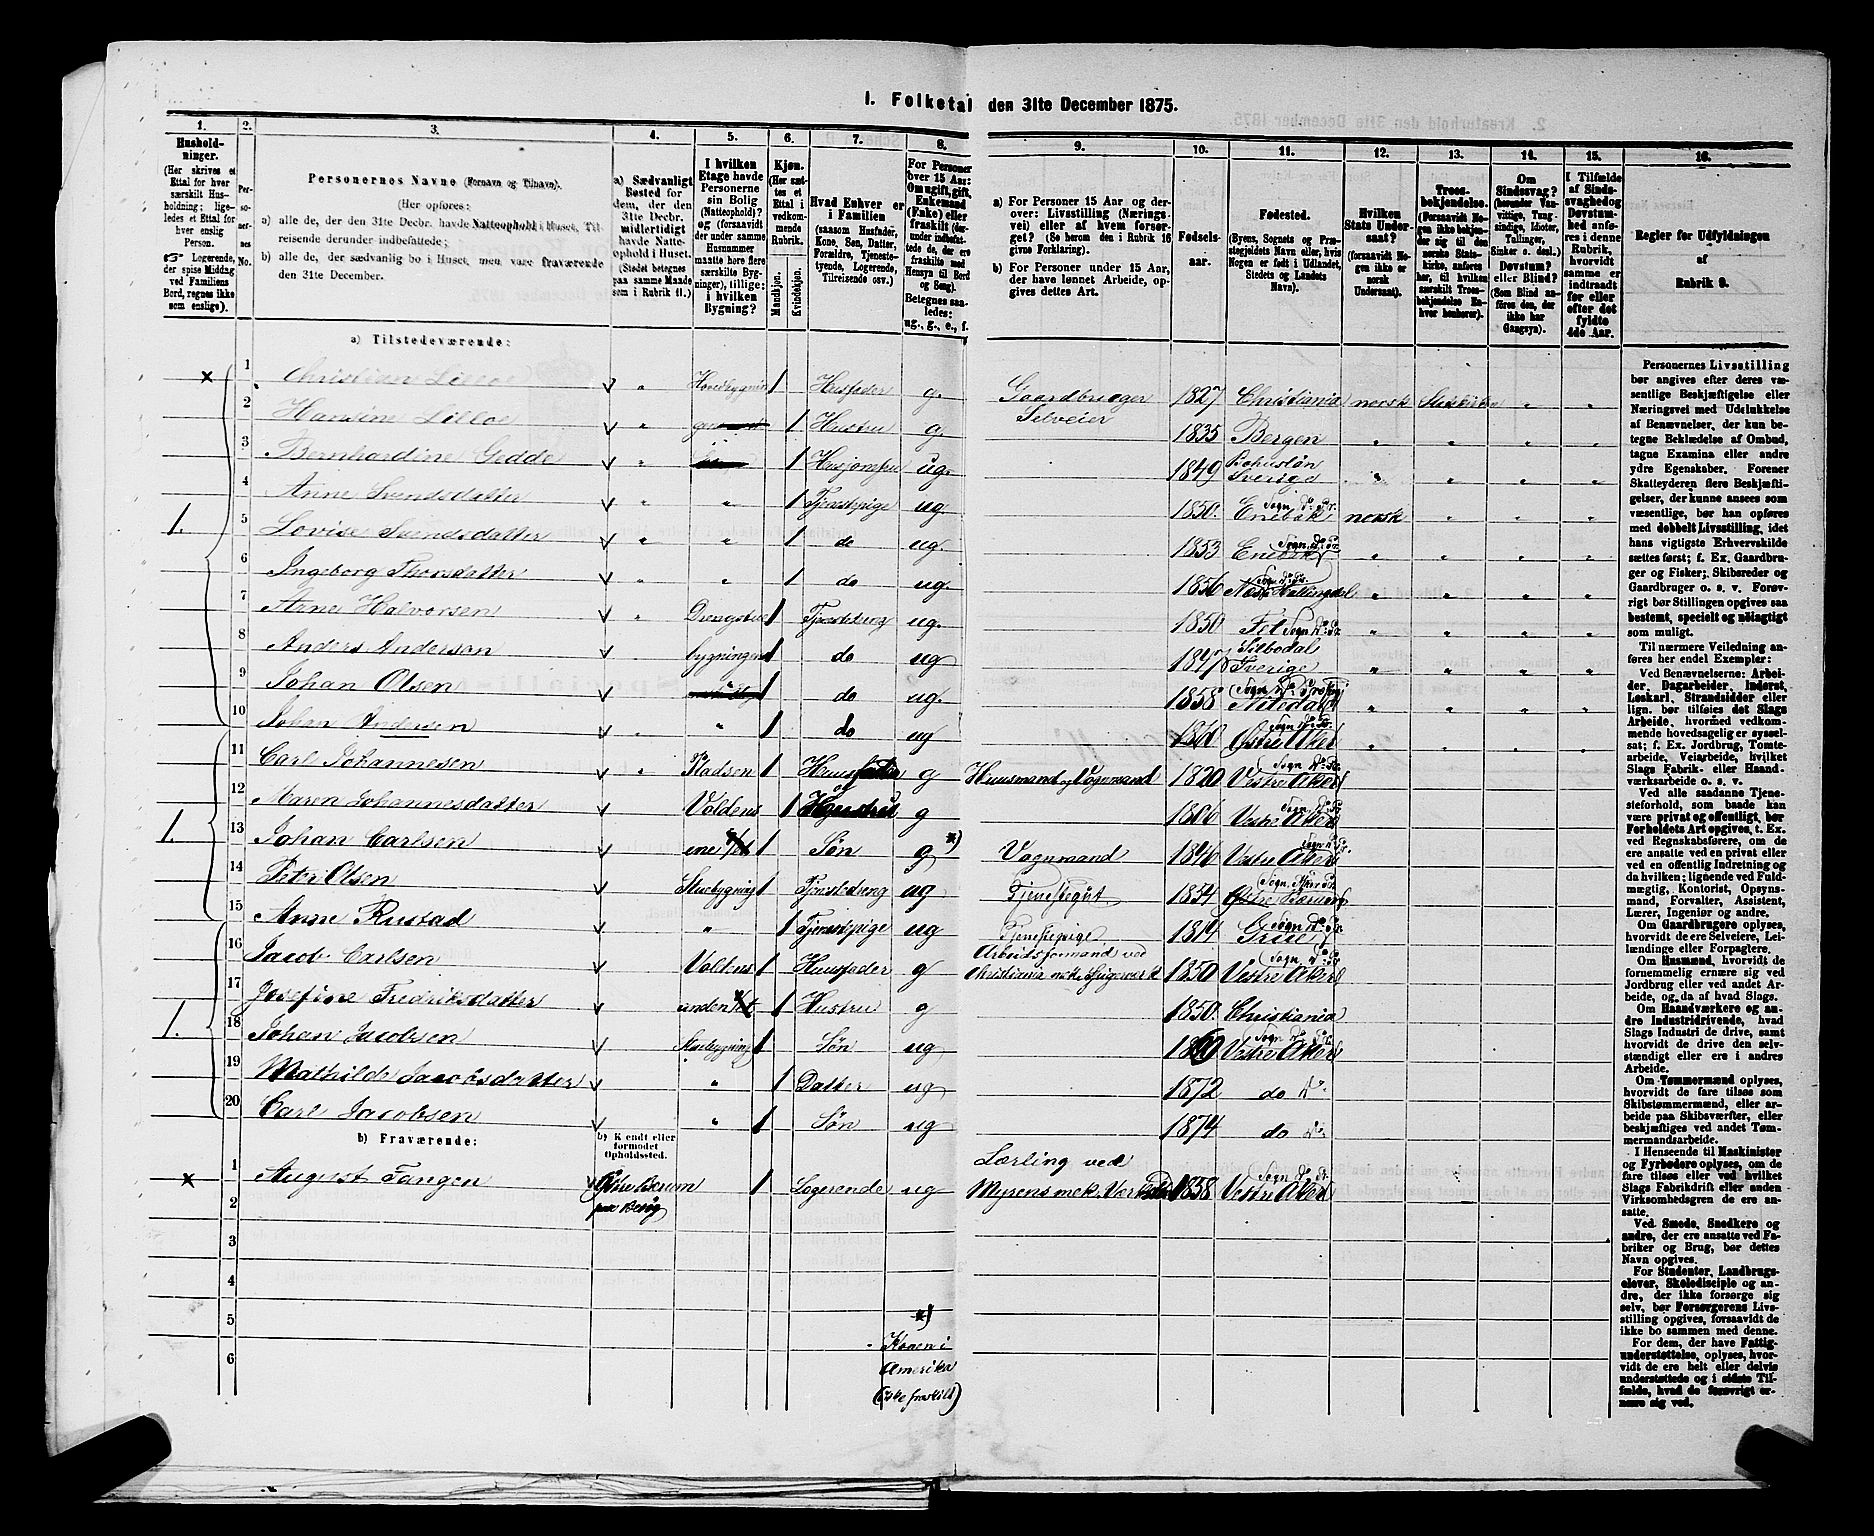 I. Folketal den 31te December 1875.
1. 2. 3. 4. 5. 6. 7. 8. 9. 10. 11. 12. 13. 14. 15. 16.
Husholdninger.
(Her skrives et Ettal for hver særskilt Husholdning; ligeledes et Ettal for hver enslig Person.
Logerende, der spise Middag ved Familiens Bord, regnes ikke som enslige).
Personernes No.
Personernes Navne (Fornavn og Tilnavn).
(Her opføres:
a) alle de, der den 31te Decbr. havde Natteophold i Huset, Tilreisende derunder indbefattede;
b) alle de, der sædvanlig bo i Huset, men vare fraværende den 31te December.
a) Sædvanligt Bosted for dem, der den 31te Decbr. midlertidigt havde Natteophold i Huset.
(Stedet betegnes paa samme Maade som i Rubrik 11.)
I hvilken Etage havde Personerne sin Bolig (Natteophold)? og (forsaavidt der under samme Husnummer maatte høre flere særskilte Bygninger), tillige: i hvilken Bygning?
Kjøn.
(Her sættes et Ettal i vedkommende Rubrik.
Mandkjøn. Kvindekjøn.
Hvad Enhver er i Familien
(saasom Husfader, Kone, Søn, Datter, Forældre, Tjenestetyende, Logerende, Tilreisende osv.)
For Personer over 15 Aar: Om ugift, gift, Enkemand (Enke) eller fraskilt (derunder indbefattede de, der ere fraskilte med Hensyn til Bord og Seng).
Betegnes saaledes: ug., g., e., f.
a) For Personer 15 Aar og derover: Livsstilling (Næringsvei) eller af hvem forsørget? (Se herom den i Rubrik 16 givne Forklaring).
b) For Personer under 15 Aar, der have lønnet Arbeide, opgives dettes Art.
Fødselsaar.
Fødested.
(Byens, Sognets og Præstegjeldets Navn eller, hvis Nogen er født i Udlandet, Stedets og Landets Navn).
Hvilken Stats Undersaat?
(forsaavidt Nogen ikke er norsk Undersaat).
Troesbekjendelse.
(Forsaavidt Nogen ikke bekjender sig til den norske Statskirke, anføres her, til hvilken særskilt Troesbekjendelse Enhver henhører).
Om Sindssvag? (herunder Vanvittige, Tungsindige, Idioter, Tullinger, Sinker o. desl.). Døvstum? eller Blind? (Som Blind anføres den, der ikke har Gangsyn).
I Tilfælde af Sindssvaghed og Døvstumhed anføres i denne Rubrik, hvorvidt samme er indtraadt før eller efter det fyldte 4de Aar.
Regler for Udfyldningen af Rubrik 9.
a) Tilstedeværende:
1 Christian Lilloe Hovedbygnin 1 Husfader g. Gaardbruger Selveier 1827 Christiania norsk Statskirken
2 Hansine Lilloe gen 1 Hustru g. 1835 Bergen
3 Bernhardine Gedde 1 Husjomfru ug. 1849 Bohuslän Sverige
4 Anne Svendsdatter 1 Tjenestepige ug. 1850. Enebak Sogn do. Pr. norsk
5 Lovise Svendsdatter 1 do ug. 1853 Enebak Sogn do. Pr.
6 Ingeborg Thorsdatter 1 do ug. 1856 Næs Hallingdal Sogn do. Pr.
7 Arne Halvorsen Drengstue 1 Tjenestedreng ug. 1850 Fet Sogn do. Pr.
8 Anders Anderson bygningen 1 do ug 1847 Silbodal Sverige
9 Johan Olsen 1 do ug. 1858 Nitedal Sogn
10 Johan Andersen 1 do ug 1860 Østre Aker Sogn do. Pr.
11 Carl Johannesen Pladsen 1 Huusfader g Huusmand og Vognmand 1820 Vestre Aker Sogn do. Pr.
12 Maren Johannesdatter Voldens 1 Hustru g 1806 Vestre Aker Sogn do. Pr.
13 Johan Carlsen 1 Søn g *) Vognmand 1846 Vestre Aker Sogn
14 Peter Olsen Stuebygning 1 Tjenestedreng ug Tjenestegut 1854 Østre Bærum Sogn Asker Pr.
15 Anne Rustad 1 Tjenestepige ug Tjenestepige 1814 Grue Sogn do. Pr.
16 Jacob Carlsen Voldens 1 Huusfader g Arbeidsformand ved Christiania mek. Spigerverk 1850 Vestre Aker Sogn do. Pr.
17 Josefine Fredriksdatter unden 1 Hustru g 1850. Christiania
18 Johan Jacobsen Stuebygning 1 Søn ug 1860 Vestre Aker Sogn do. Pr.
19 Mathilde Jacobsdatter 1 Datter ug 1872 do do.
20 Carl Jacobsen 1 Søn ug 1874 do do.
b) Fraværende:
b) Kendt eller formodet Opholdssted.
1 August Tangen Østre Bærum paa Besøg 1 Logerende ug Lærling ved Myrens mek. Værksted 1858 Vestre Aker Sogn do. Pr.
2
3
4
5
6
*) Konen i Amerika (ikke fraskilt)
Personernes Livsstilling bør angives efter deres væsentlige Beskjæftigelse eller Næringsvei med Udelukkelse af Benævnelser, der kun betegne Beklædelse af Ombud, tagne Examina eller andre ydre Egenskaber. Forener Skatteyderen flere Beskjæftigelser, der kunne ansees som væsentlige, bør han opføres med dobbelt Livsstilling, idet hans vigtigste Erhvervskilde sættes først; f. Ex. Gaardbruger og Fisker; Skibsreder og Gaardbruger o. s. v. Forøvrigt bør Stillingen opgives saa bestemt, specielt og nøiagtigt som muligt.
Til nærmere Veiledning anføres her endel Exempler:
Ved Benævnelserne: Arbeider, Dagarbeider, Inderst, Løskarl, Strandsidder eller lign. bør tilføies det Slags Arbeide, hvormed vedkommende hovedsagelig er sysselsat; f. Ex. Jordbrug, Tomtearbeide, Veiarbeide, hvilket Slags Fabrik- eller Haandværksarbeide o. s. v.
Ved alle saadanne Tjenesteforhold, som baade kan være privat og offentligt, bør Forholdets Art opgives, t. Ex. ved Regnskabsførere, om de ere ansatte ved en privat eller ved en offentlig Indretning og da hvilken; lignende ved Fuldmægtig, Kontorist, Opsynsmand, Forvalter, Assistent, Lærer, Ingeniør og andre.
Om Gaardbrugere oplyses, hvorvidt de ere Selveiere, Leilændinge eller Forpagtere.
Om Husmænd, hvorvidt de fornemmelig ernære sig ved Jordbrug eller ved andet Arbeide, og da af hvad Slags.
Om Haandværkere og andre Industridrivende, hvad Slags Industri de drive, samt hvorvidt de drive den selvstændigt eller ere i andres Arbeide.
Om Tømmermænd oplyses, hvorvidt de fare tilsøs som Skibstømmermænd, eller arbeide paa Skibsværfter, eller beskjæftiges ved andet Tømmermandsarbeide.
I Henseende til Maskinister og Fyrbødere oplyses, om de fare tilsøs eller ved hvilket Slags Fabrikdrift eller anden Virksomhedsgren de ere ansatte.
Ved Smede, Snedkere og andre, der ere ansatte ved Fabriker og Brug, bør dettes Navn opgives.
For Studenter, Landbrugselever, Skoledisciple og andre, der ikke forsørge sig selv, bør Forsørgerens Livsstilling opgives, forsaavidt de ikke bo sammen med denne.
For dem, der have Fattigunderstøttelse, oplyses, hvorvidt de ere helt eller delvis understøttede og i sidste Tilfælde, hvad de forøvrigt ernære sig ved.